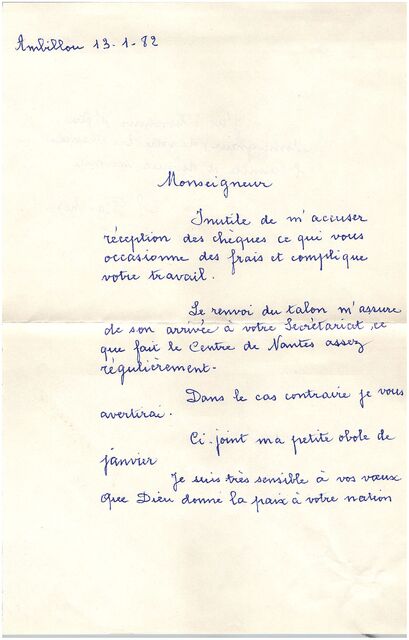 Ambillou 13-1-82
Monseigneur
Inutile de m'accuser
réception des chèques ce qui vous
occasionne des frais et complique
votre travail.
Le renvoi du talon m'assure
de son arrivée à votre Secrétariat, ce
que fait le Centre de Nantes assez
régulièrement.
Dans le cas contraire je vous
avertirai.
Ci-joint ma petite obole de
janvier
Je suis très sensible à vos vœux
Que Dieu donne la paix à votre nation